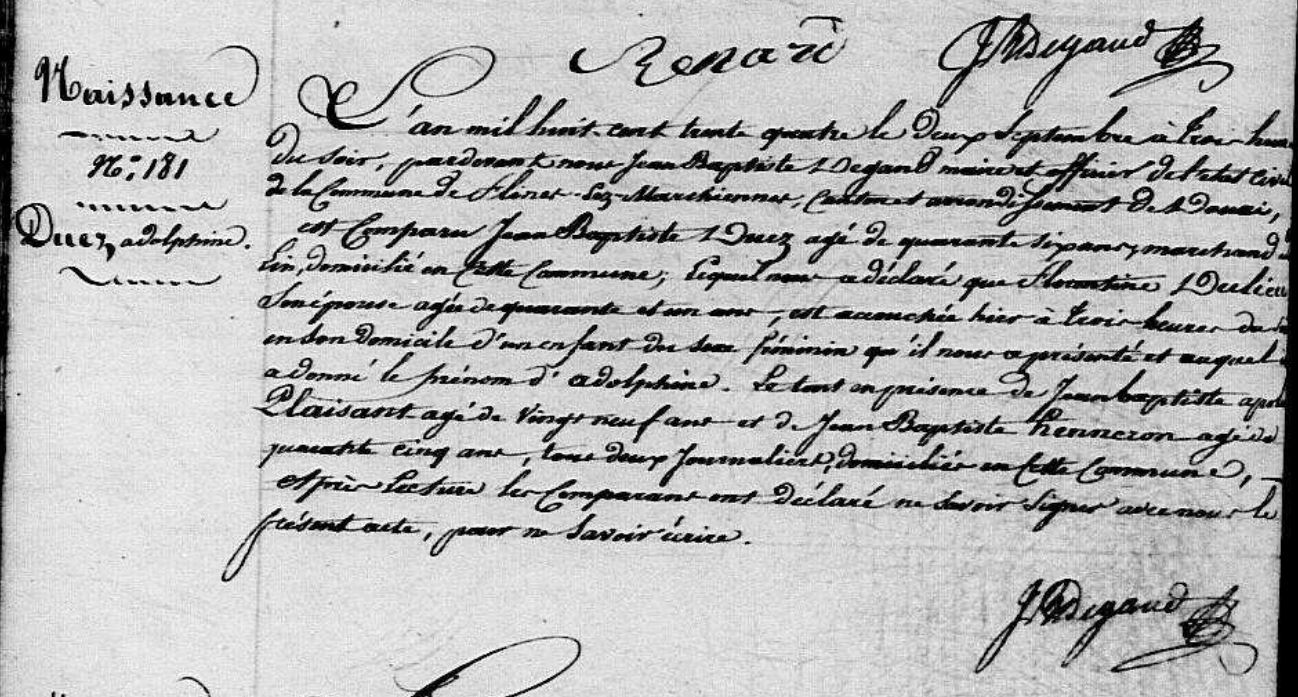 Renard JBDegand
Naissance
N.° 181
Duez, adolphine.
L'an mil huit-cent trente quatre le deux Septembre à trois heures
du soir, pardevant nous Jean Baptiste Degand maire et officier de l'etat civil
de la Commune de Flines-Lez-Marchiennes, Canton et arrondissement de Douai,
est Comparu Jean Baptiste Duez agé de quarante six ans, marchand de
Lin, domicilié en Cette Commune; Lequel nous a déclaré que Florentine
Son épouse agée de quarante et un ans, est accouchée hier à trois heures du
en Son domicile d'un enfant du sexe féminin qu'il nous a présenté et auquel il
a donné le prénom d'adolphine. Le tout en présence de Jean baptiste
Plaisant agé de vingt neuf ans et de Jean Baptiste Henneron agé de
quarante cinq ans, tous deux Journaliers, domiciliés en Cette Commune,
et après Lecture les Comparans ont déclaré ne Savoir Signer avec nous le
présent acte, pour ne Savoir écrire.
JBDegand